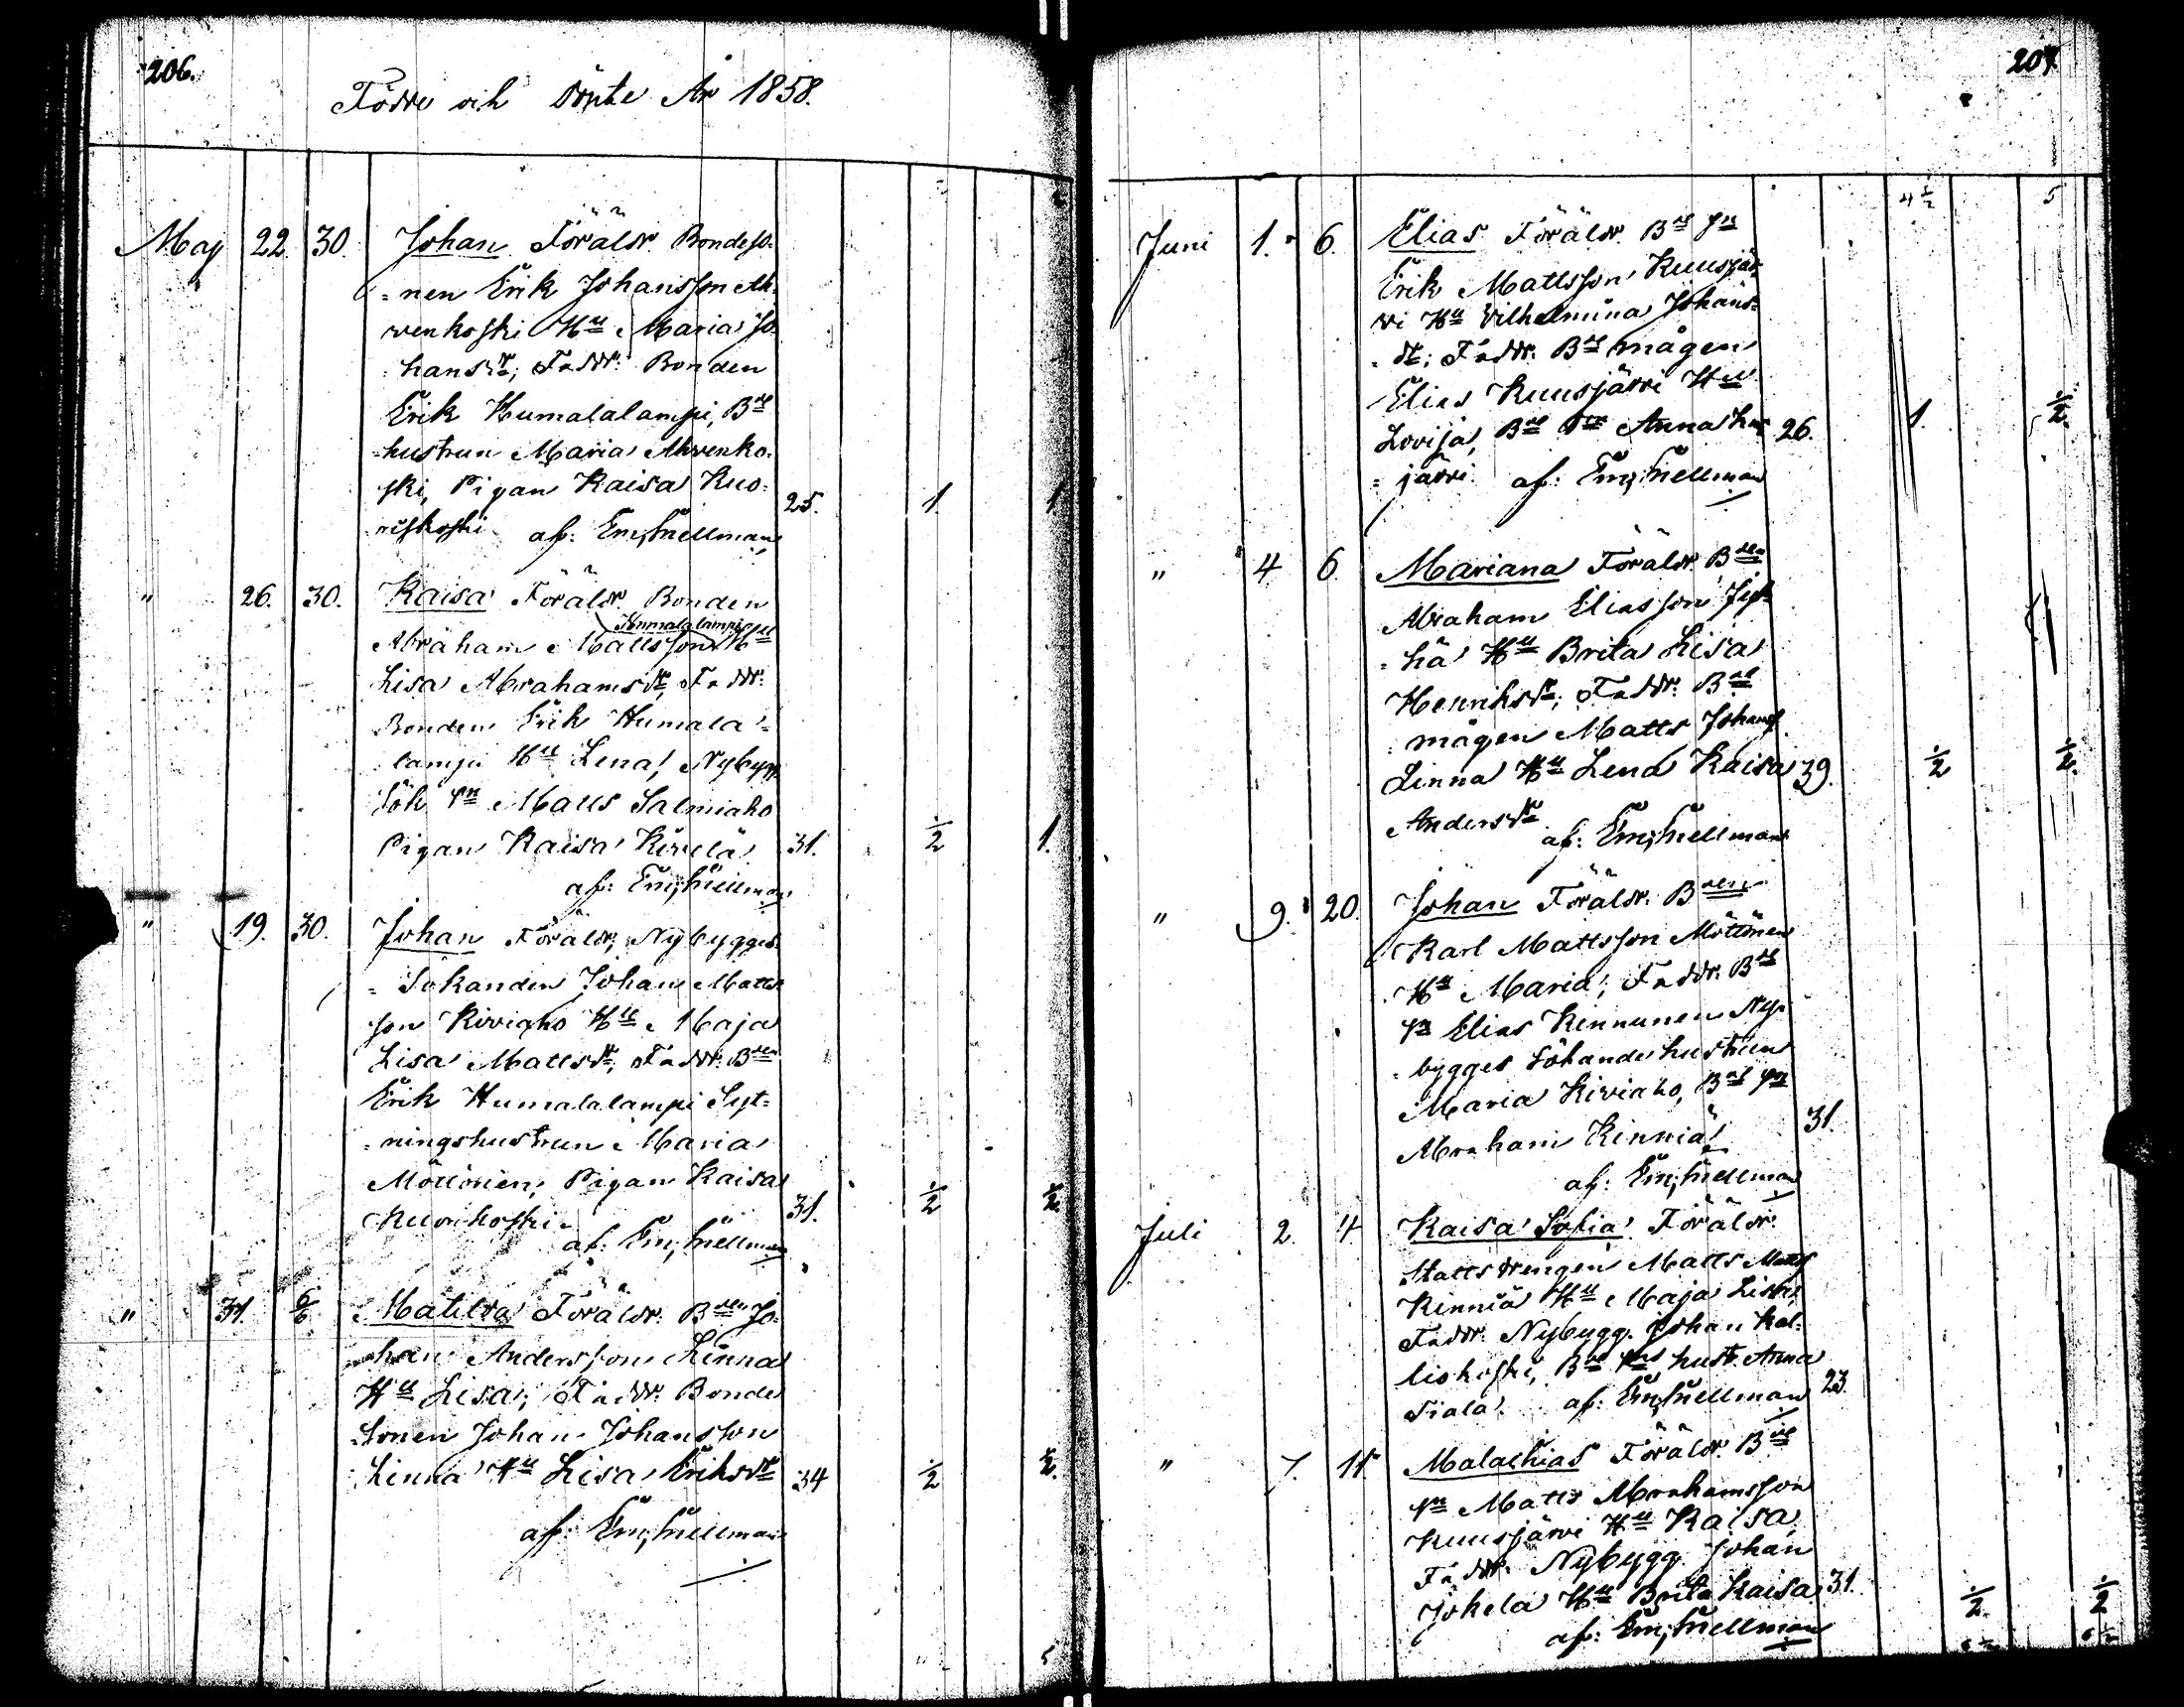 206.
Födde och döpte År 1858.
May 22. 30. Johan Föräldr. Bondeso-
= nen Erik Johansson Ah-
venkoski Hu Maria Jo-
hansdr; Faddr: Bonden
Erik Humalalampi, Bde
hustrun Maria Ahvenko-
ski, Pigan Kaisa Kuo-
niskoski 25. 1 1
af: Em; Snellman
" 26. 30. Kaisa Föräldr. Bonden
Humalalampi
Abraham Mattsson Hu
Lisa Abrahamsdr, Faddr:
Bonden Erik Humala-
lampi Hu Lena, Nybygg.
Sök. sn Matts Salmiaho
Pigan Kaisa Kivelä 31. ½ 1.
af: Em; Snellman
" 19. 30. Johan Föräldr, Nybygges
= Sökanden Johan Matts
son Kiviaho Hu Maja
Lisa Mattsdr, Faddr: Bden
Erik Humalalampi Syt-
= ningshustrun Maria
Möttönen, Pigan Kaisa
Kuonkoski 31. ½ ½
af: Em; Snellman
" 31. 6/6 Matilda Föräldr. Bden Jo-
han Andersson Linna
Hu Lisa; Faddr. Bonde
Sonen Johan Johansson
Linna Hu Lisa Eriksdr 34 ½ ½.
af: Em; Snellman
207.
4½ 5
Juni 1. 6. Elias Föräldr. Bde sn
Erik Mattsson Kuusjär-
vi Hu Vilhelmina Johans-
= dr; Faddr. Bde mågen
Elias Kuusjärvi Hu
Lovisa, Bde dr Anna Kuus 26. 1. ½.
= järvi. af: Em; Snellman
" 4 6. Mariana Föräldr. Bden
Abraham Eliasson Jyl-
= hä Hu Brita Lisa
Henriksdr; Faddr: Bde
= mågen Matts Johans.
Linna Hu Lena Kaisa 39. ½ ½.
Andersdr
af: Em; Snellman
" 9. 20. Johan Föräldr. Bden
Karl Mattsson Möttönen
Hu Maria; Faddr: Bde
sn Elias Kennunen Ny-
= bygges Sökande hustrun
Maria Kiviaho, Bde sn
Abraham Kinnia 31.
af: Em; Snellman
Juli 2. 4. Kaisa Sofia Föräldr.
Stattsdrengen Matts Matts
Kinniä Hu Maja Lisa;
Faddr. Nybygg. Johan Kal-
liokoski, Bde sns hust. Anna
Tiala. af: Em; Snellman 23.
" 7. 11. Malachias Föräldr. Bde
sn Matts Abrahamsson
Kuusjärvi Hu Kaisa,
Faddr. Nybygg. Johan
Jokela Hu Brita Kaisa 31. ½. ½
af: Em; Snellman